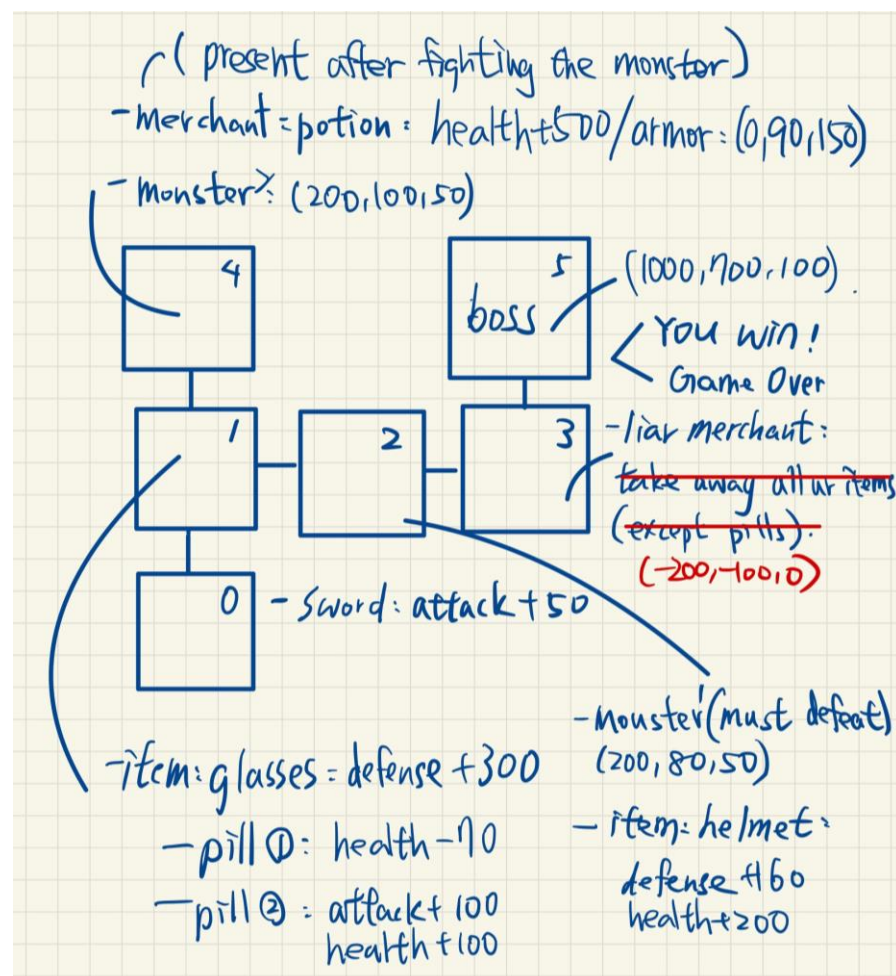 (present after fighting the monster)
-merchant=potion: health+500/armor:(0,90,150)
-monster2: (200,100,50)
4
5
boss
(1000,700,100)
You win!
Game Over
1
2
3
-liar merchant:
take away all ur items
(except pills).
(-200,-100,0)
0
-sword: attack+50
-monster1(must defeat)
(200,80,50)
-item:glasses=defense+300
-pill①: health-70
-pill②: attack+100
health+100
-item:helmet:
defense+160
health+200